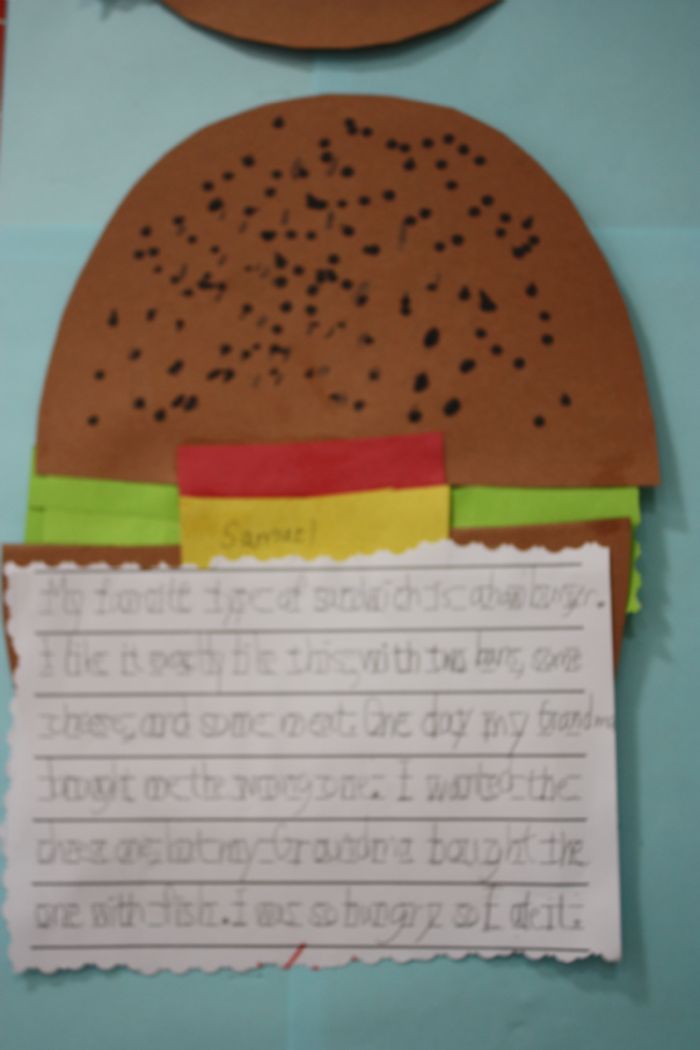 Samuel
My favorite type of sandwich is a hamburger.
I like it mostly like this, with two buns, some
cheese, and some meat. One day my Grandma
bought me the wrong one. I wanted the
cheese one, but my Grandma bought the
one with fish. I was so hungry so I ate it.